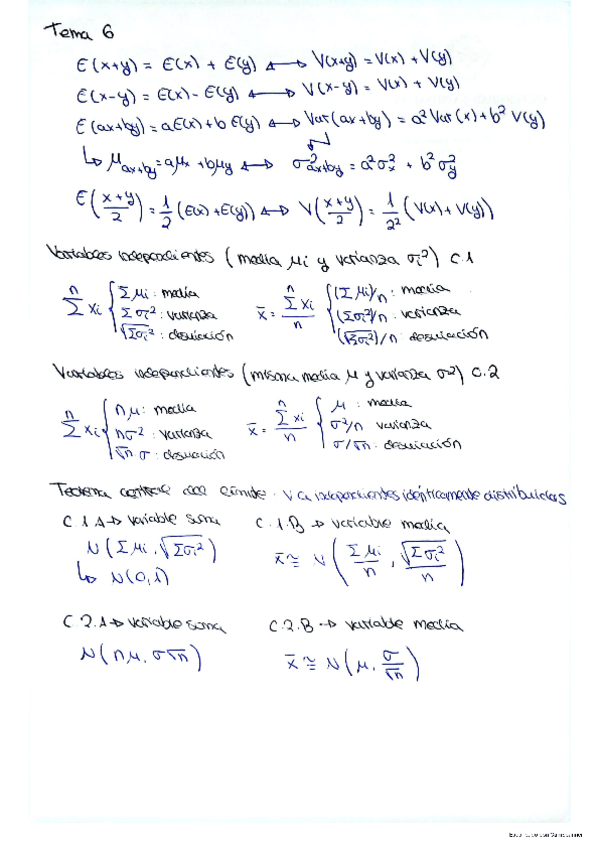 Tema 6
E(x+y) = E(x) + E(y) ↔ V(x+y) = V(x) + V(y)
E(x-y) = E(x) - E(y) ↔ V(x-y) = V(x) + V(y)
E(ax+by) = aE(x) + bE(y) ↔ Var(ax+by) = a² Var(x) + b² V(y)
↳ μ_{ax+by} = aμ_x + bμ_y ↔ σ²_{ax+by} = a²σ²_x + b²σ²_y
E((x+y)/2) = 1/2 (E(x) + E(y)) ↔ V((x+y)/2) = 1/2² (V(x) + V(y))
Variables independientes (media μi y varianza σi²) C.1
n
Σ xi { Σμi : media
Σσi² : varianza
√Σσi² : desviación
x̄ = Σ^n xi / n { (Σμi)/n : media
(Σσi²)/n : varianza
(√Σσi²)/n desviación
Variables independientes (misma media μ y varianza σ²) C.2
n
Σ xi { nμ : media
nσ² : varianza
√n σ : desviación
x̄ = Σ^n xi / n { μ : media
σ²/n varianza
σ/√n : desviación
Teorema central del límite : V a independientes idénticamente distribuidas
C.1.A → variable suma
N(Σμi, √Σσi²)
↳ N(0,1)
C.1.B → variable media
x̄ ≅ N(Σμi/n, √Σσi²/n)
C.2.A → variable suma
N(nμ, σ√n)
C.2.B → variable media
x̄ ≅ N(μ, σ/√n)